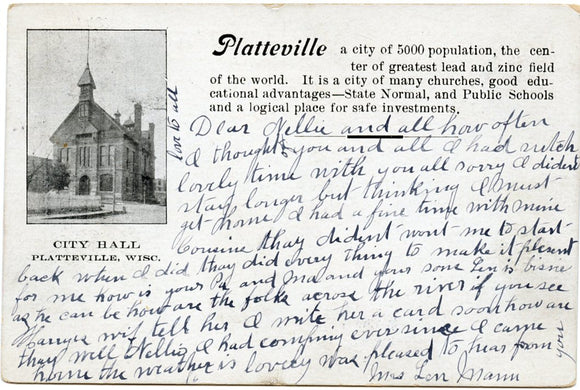 Platteville a city of 5000 population, the cen-
ter of greatest lead and zinc field
of the world. It is a city of many churches, good edu-
cational advantages—State Normal, and Public Schools
and a logical place for safe investments.
CITY HALL
PLATTEVILLE, WISC.
love to all
Dear Nellie and all how often
I thought of you and all I had such
lovely time with you all sorry I dident
stay longer but thinking I must
get home I had a fine time with mine
Cousine thay dident wont me to start
back when I did thay did every thing to make it plesent
for me how is your Pa and Ma and your son Len is bisne
as he can be how are the folks across the river if you see
wif tell her I write her a card soon how are
thay will Nellie I had company ever since I came
home the weather is lovely was pleased to hear from
you
Mrs Len Mann